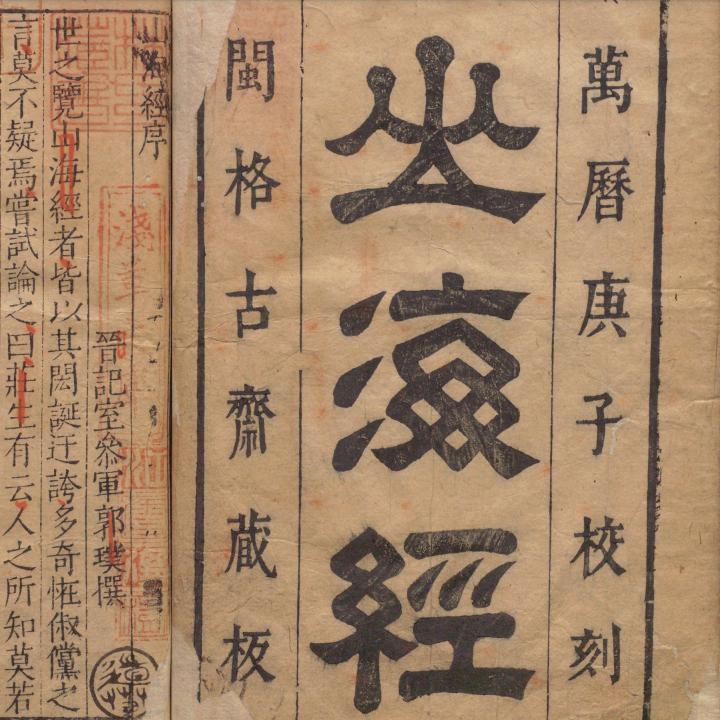 萬曆庚子校刻
山海經
閩格古齋藏板
山海經序
晉記室參軍郭璞撰
世之覽山海經者皆以其閎誕迂誇多奇怪俶儻之
言莫不疑焉嘗試論之曰莊生有云人之所知莫若